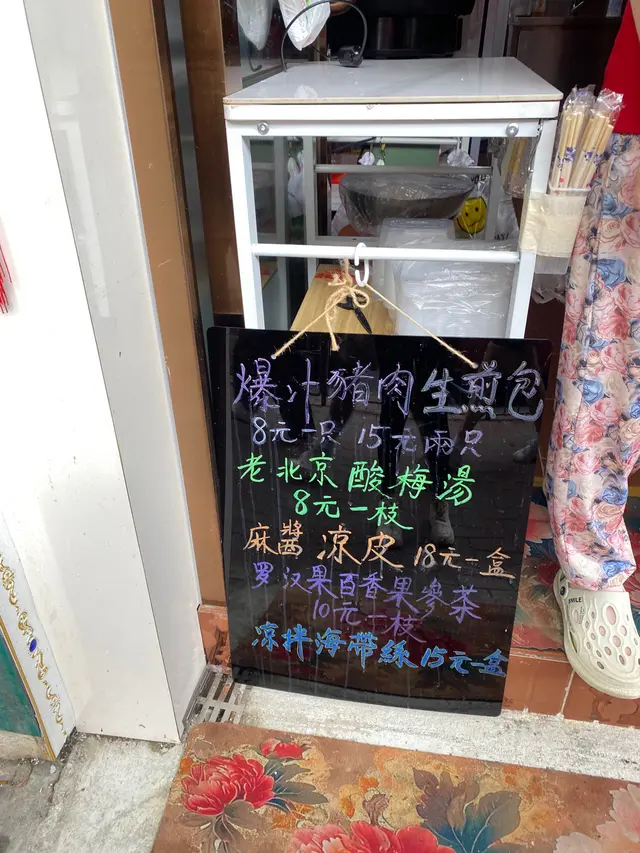 爆汁豬肉生煎包
8元一只 15元兩只
老北京酸梅湯
8元一枝
麻醬凉皮 18元一盒
罗汉果百香果參茶
10元一枝
凉拌海帶絲15元一盒
SMILE